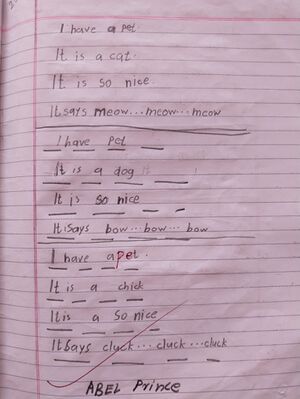 I have a pet.
It is a cat.
It is so nice.
It says meow...meow...meow
I have pet
It is a dog
It is so nice
It says bow...bow...bow
I have a pet.
It is a chick
It is a so nice
It says cluck...cluck...cluck
ABEL Prince